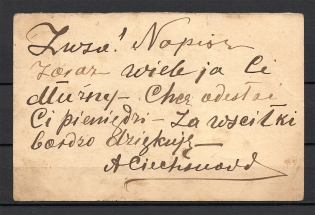 Napisz
zaraz wiele ja Ci
dłużny. Chcę odesłać
Ci pieniędzi - Za wsciłki
bardzo dziękuję
A Ciechanowd